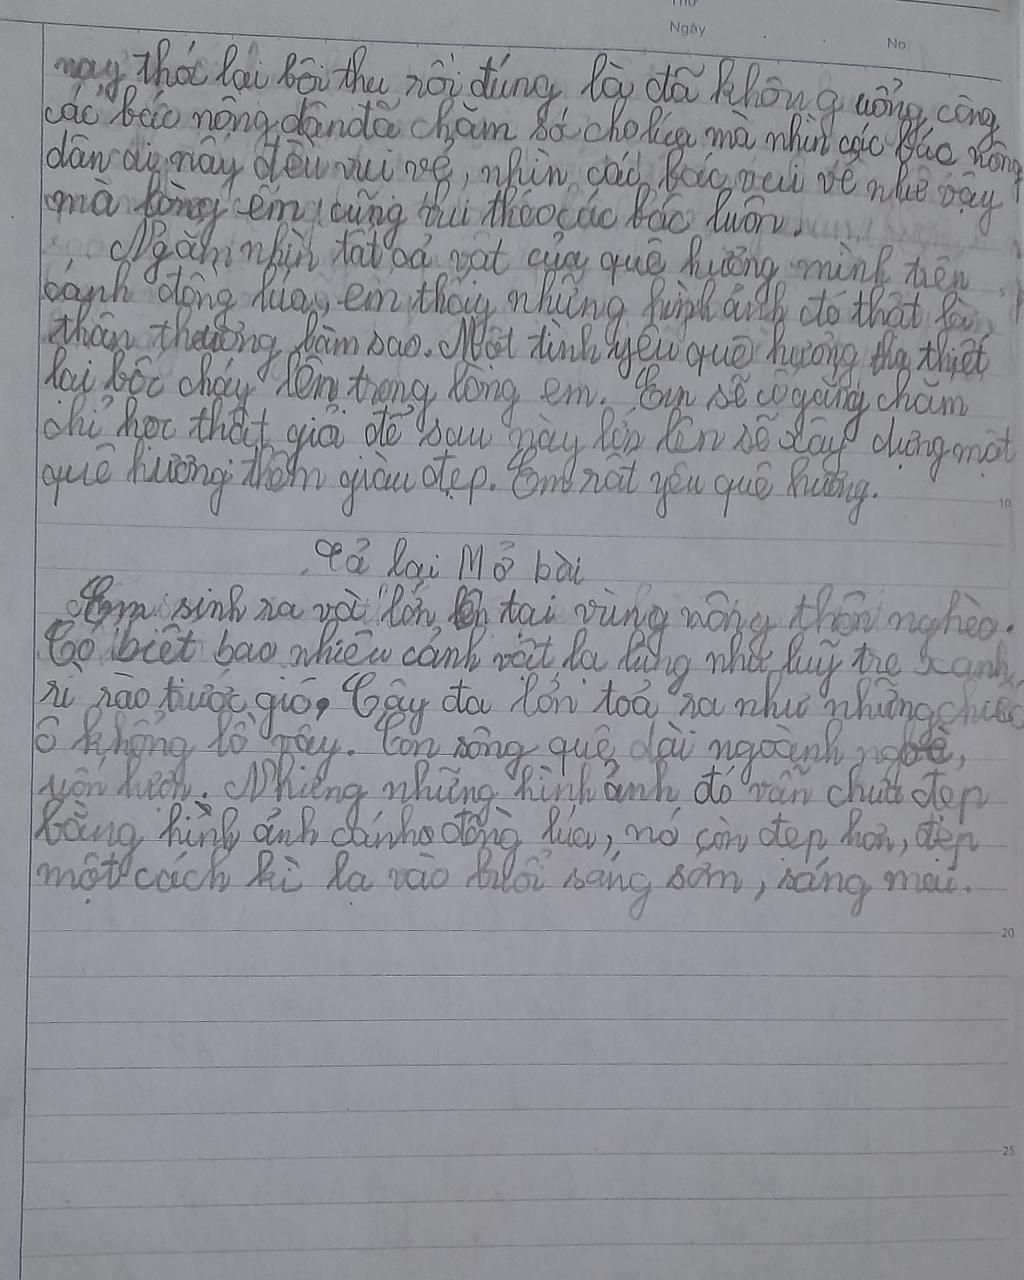 Thứ
Ngày
No.
nay thóc lại bội thu rồi đúng là đã không uổng công
các bác nông dân đã chăm só cho lúa mà nhìn các bác nông
dân ai nấy đều vui vẻ, nhìn các bác vui vẻ như vậy
mà lòng em cũng vui théo các bác luôn.
Ngắm nhìn tất cả vật của quê hương mình trên
cánh đồng lúa, em thấy những hình ảnh đó thật
thân thương làm sao. Một tình yêu quê hương tha thiết
lại bốc cháy lên trong lòng em. Em sẽ cố gắng chăm
chỉ học thật giỏi để sau này lớn lên sẽ xây dựng một
quê hương thêm giàu đẹp. Em rất yêu quê hương.
10
Tả lại Mở bài
Em sinh ra và lớn lên tại vùng nông thôn nghèo.
Có biết bao nhiêu cảnh vật lạ lùng như luỹ tre xanh
rì rào trước gió, Cây đa lớn toả ra như những chiếc
ô khổng lồ vậy. Con sông quê dài ngoành ngoè,
uốn lượn. Nhưng những hình ảnh đó vẫn chưa đẹp
bằng hình ảnh cánh đồng lúa, nó còn đẹp hơn, đẹp
một cách kì lạ vào buổi sáng sớm, sáng mai.
20
25